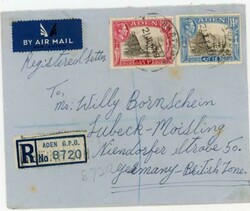 BY AIR MAIL
ADEN ADEN
Registered Letter
To,
Mr. Willy Bornschein
Lubeck - Moisling
R ADEN G.P.O.
No. 8720
Niendorfer strabe 50.
Germany - British Zone.